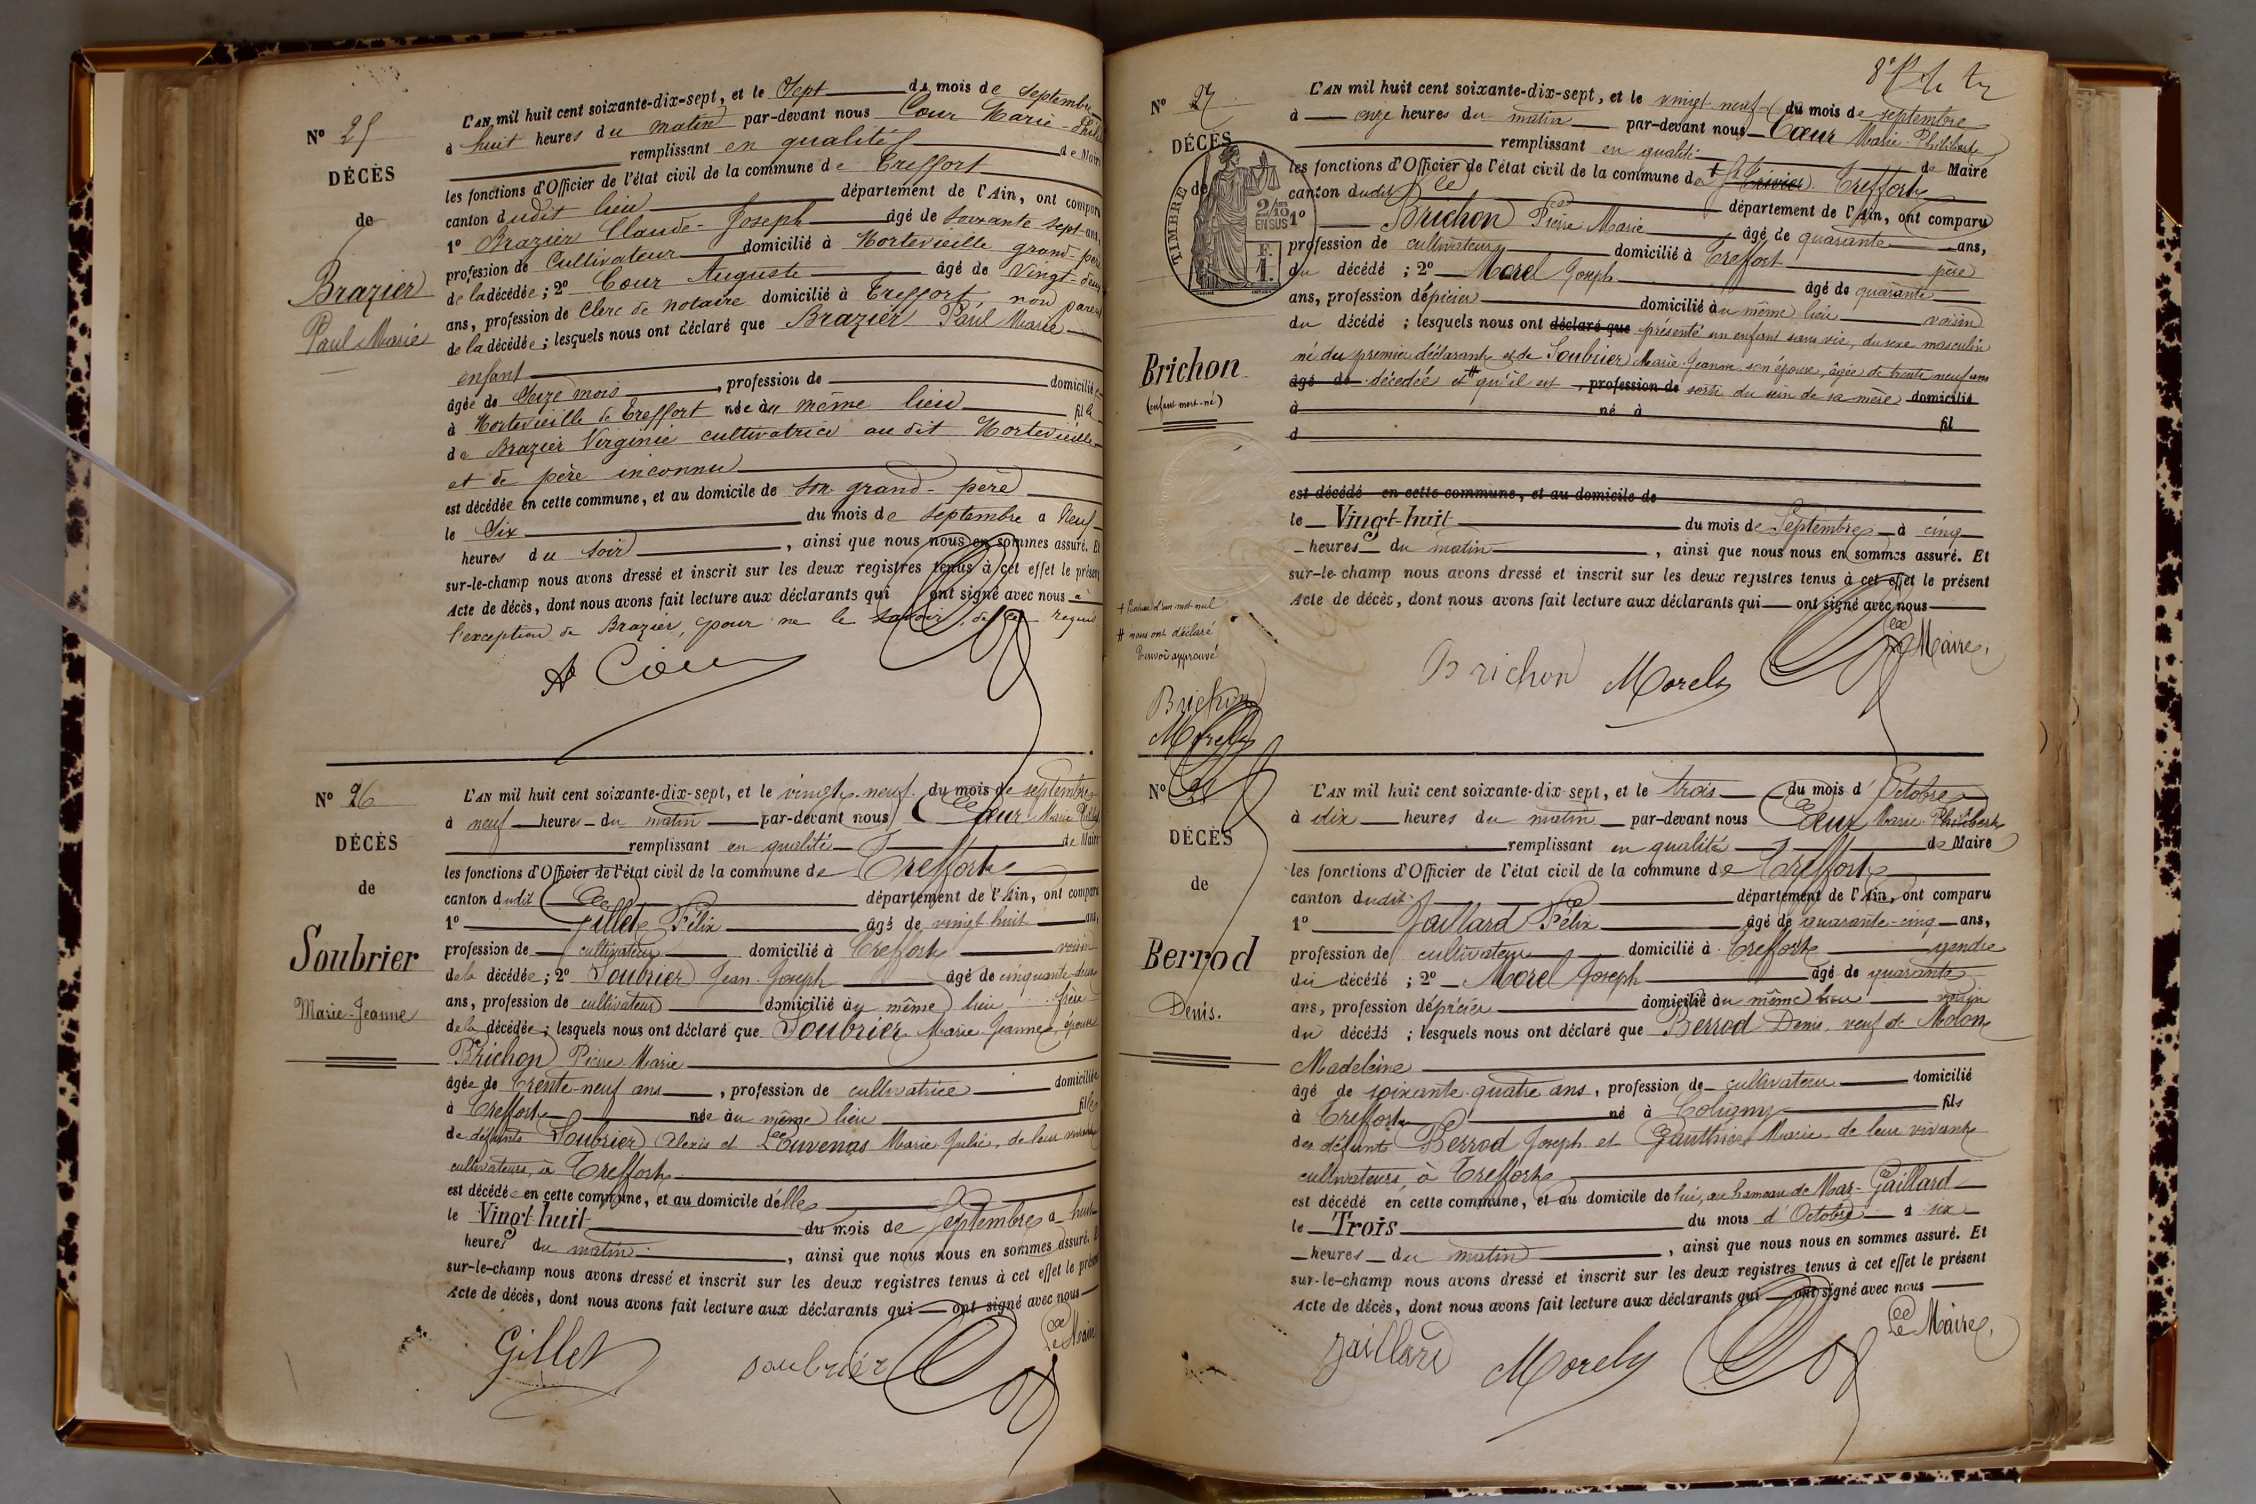 N° 25
DÉCÈS
de
Brazier
Paul Marie
L'AN mil huit cent soixante-dix-sept, et le Sept du mois de septembre
à huit heures du matin par-devant nous Cœur Marie-Phili
remplissant en qualité de Maire
les fonctions d'Officier de l'état civil de la commune de Treffort
canton dudit lieu département de l'Ain, ont comparu
1° Brazier Claude-Joseph âgé de soixante sept ans,
profession de Cultivateur domicilié à Mortevieille grand-père
de la décédée; 2° Cœur Auguste âgé de Vingt-deux
ans, profession de Clerc de notaire domicilié à Treffort, non parent
de la décédée; lesquels nous ont déclaré que Brazier Paul Marie
enfant
âgée de Seize mois, profession de domicilié
à Mortevieille de Treffort née au même lieu fil
de Brazier Virginie cultivatrice au dit Mortevieille
et de père inconnu
est décédée en cette commune, et au domicile de son grand-père
le Six du mois de septembre a Neuf
heures du soir, ainsi que nous nous en sommes assuré. Et
sur-le-champ nous avons dressé et inscrit sur les deux registres tenus à cet effet le présent
Acte de décès, dont nous avons fait lecture aux déclarants qui ont signé avec nous à
l'exception de Brazier, pour ne le savoir, de ce requis
A Cœur
N° 26
DÉCÈS
de
Soubrier
Marie-Jeanne
L'AN mil huit cent soixante-dix-sept, et le vingt-neuf du mois de septembre
à neuf heures du matin par-devant nous Cœur Marie Phili
remplissant en qualité de Maire
les fonctions d'Officier de l'état civil de la commune de Treffort
canton dudit département de l'Ain, ont comparu
1° Gillet Félix âgé de vingt-huit ans,
profession de cultivateur domicilié à Treffort voisin
de la décédée; 2° Soubrier Jean-Joseph âgé de cinquante-deux
ans, profession de cultivateur domicilié au même lieu frère
de la décédée; lesquels nous ont déclaré que Soubrier Marie Jeanne, épouse
Brichon Pierre Marie
âgée de Trente-neuf ans, profession de cultivatrice domiciliée
à Treffort née au même lieu fille
de défunts Soubrier Alexis et Marie Julie, de leur vivant
cultivateurs, à Treffort
est décédée en cette commune, et au domicile d'elle
le Vingt-huit du mois de Septembre a huit
heures du matin, ainsi que nous nous en sommes assuré. Et
sur-le-champ nous avons dressé et inscrit sur les deux registres tenus à cet effet le présent
Acte de décès, dont nous avons fait lecture aux déclarants qui ont signé avec nous
Le Maire
Gillet soubrier
N° 27
DÉCÈS
de
TIMBRE
2/10 EN SUS
F. 1.
Brichon
(enfant mort-né)
nous ont déclaré
Renvoi approuvé
Brichon
Morel
L'AN mil huit cent soixante-dix-sept, et le vingt-neuf du mois de septembre
à onze heures du matin par-devant nous Cœur Marie-Philibert
remplissant en qualité de Maire
les fonctions d'Officier de l'état civil de la commune de St Trivier Treffort
canton dudit département de l'Ain, ont comparu
1° Brichon Pierre Marie âgé de quarante ans,
profession de cultivateur domicilié à Treffort père
du décédé; 2° Morel Joseph âgé de quarante
ans, profession d'épicier domicilié au même lieu voisin
du décédé; lesquels nous ont déclaré que présenté un enfant sans vie, du sexe masculin
né du premier déclarant et de Soubrier Marie-Jeanne son épouse, âgée de trente neuf ans
âgé de décédée et qu'il est, profession de sorti du sein de sa mère domicilié
à né à fil
d
est décédé en cette commune, et au domicile de
le Vingt-huit du mois de Septembre à cinq
heures du matin, ainsi que nous nous en sommes assuré. Et
sur-le-champ nous avons dressé et inscrit sur les deux registres tenus à cet effet le présent
Acte de décès, dont nous avons fait lecture aux déclarants qui ont signé avec nous
Le Maire,
Brichon Morel
N°
DÉCÈS
de
Berrod
Denis.
L'AN mil huit cent soixante-dix-sept, et le trois du mois d'Octobre
à dix heures du matin par-devant nous Cœur Marie-Philibert
remplissant en qualité de Maire
les fonctions d'Officier de l'état civil de la commune de Treffort
canton dudit département de l'Ain, ont comparu
1° Jaillard Félix âgé de quarante-cinq ans,
profession de cultivateur domicilié à Treffort gendre
du décédé; 2° Morel Joseph âgé de quarante
ans, profession d'épicier domicilié au même lieu voisin
du décédé; lesquels nous ont déclaré que Berrod Denis, veuf de Molon
Madeleine
âgé de soixante-quatre ans, profession de cultivateur domicilié
à Treffort né à Coligny fils
des défunts Berrod Joseph et Gauthier Marie, de leur vivant
cultivateurs, à Treffort
est décédé en cette commune, et au domicile de lui, au hameau de Mas-Gaillard
le Trois du mois d'Octobre à six
heures du matin, ainsi que nous nous en sommes assuré. Et
sur-le-champ nous avons dressé et inscrit sur les deux registres tenus à cet effet le présent
Acte de décès, dont nous avons fait lecture aux déclarants qui ont signé avec nous
Le Maire,
Jaillard Morel